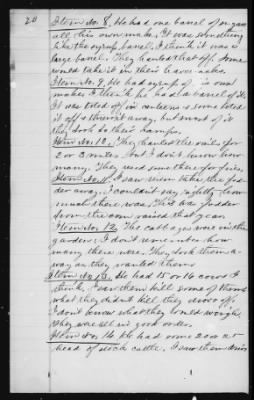 20
Item No. 8. He had one barrel of sugar
all his own make. It was something
like the syrup barrel. I think it was a
large barrel. They hauled that off. Some
would take it in their
Item No. 9. He had syrup of his own
make. I think he had a barrel of it.
It was toted off in canteens & some toted
it off & threw it away, but most of it
they took to their camps.
Item No. 10. They hauled the rails for
2 or 3 miles but I don't know how
many. They used them for fires.
Item No. 11. I saw them take the fod-
der away. I couldn't say rightly how
much there was. This was fodder
from the corn raised that year.
Item No. 12. The cabbages was in the
garden; I don't remember how
many there were. They took them a-
way as they wanted them.
Item No. 13. He had 15 or 16 cows I
think. I saw them kill some of them &
what they didn't kill they drove off.
I don't know what they would weigh.
They were all in good order.
Item No. 14. He had some 20 or
head of stock cattle. I saw them